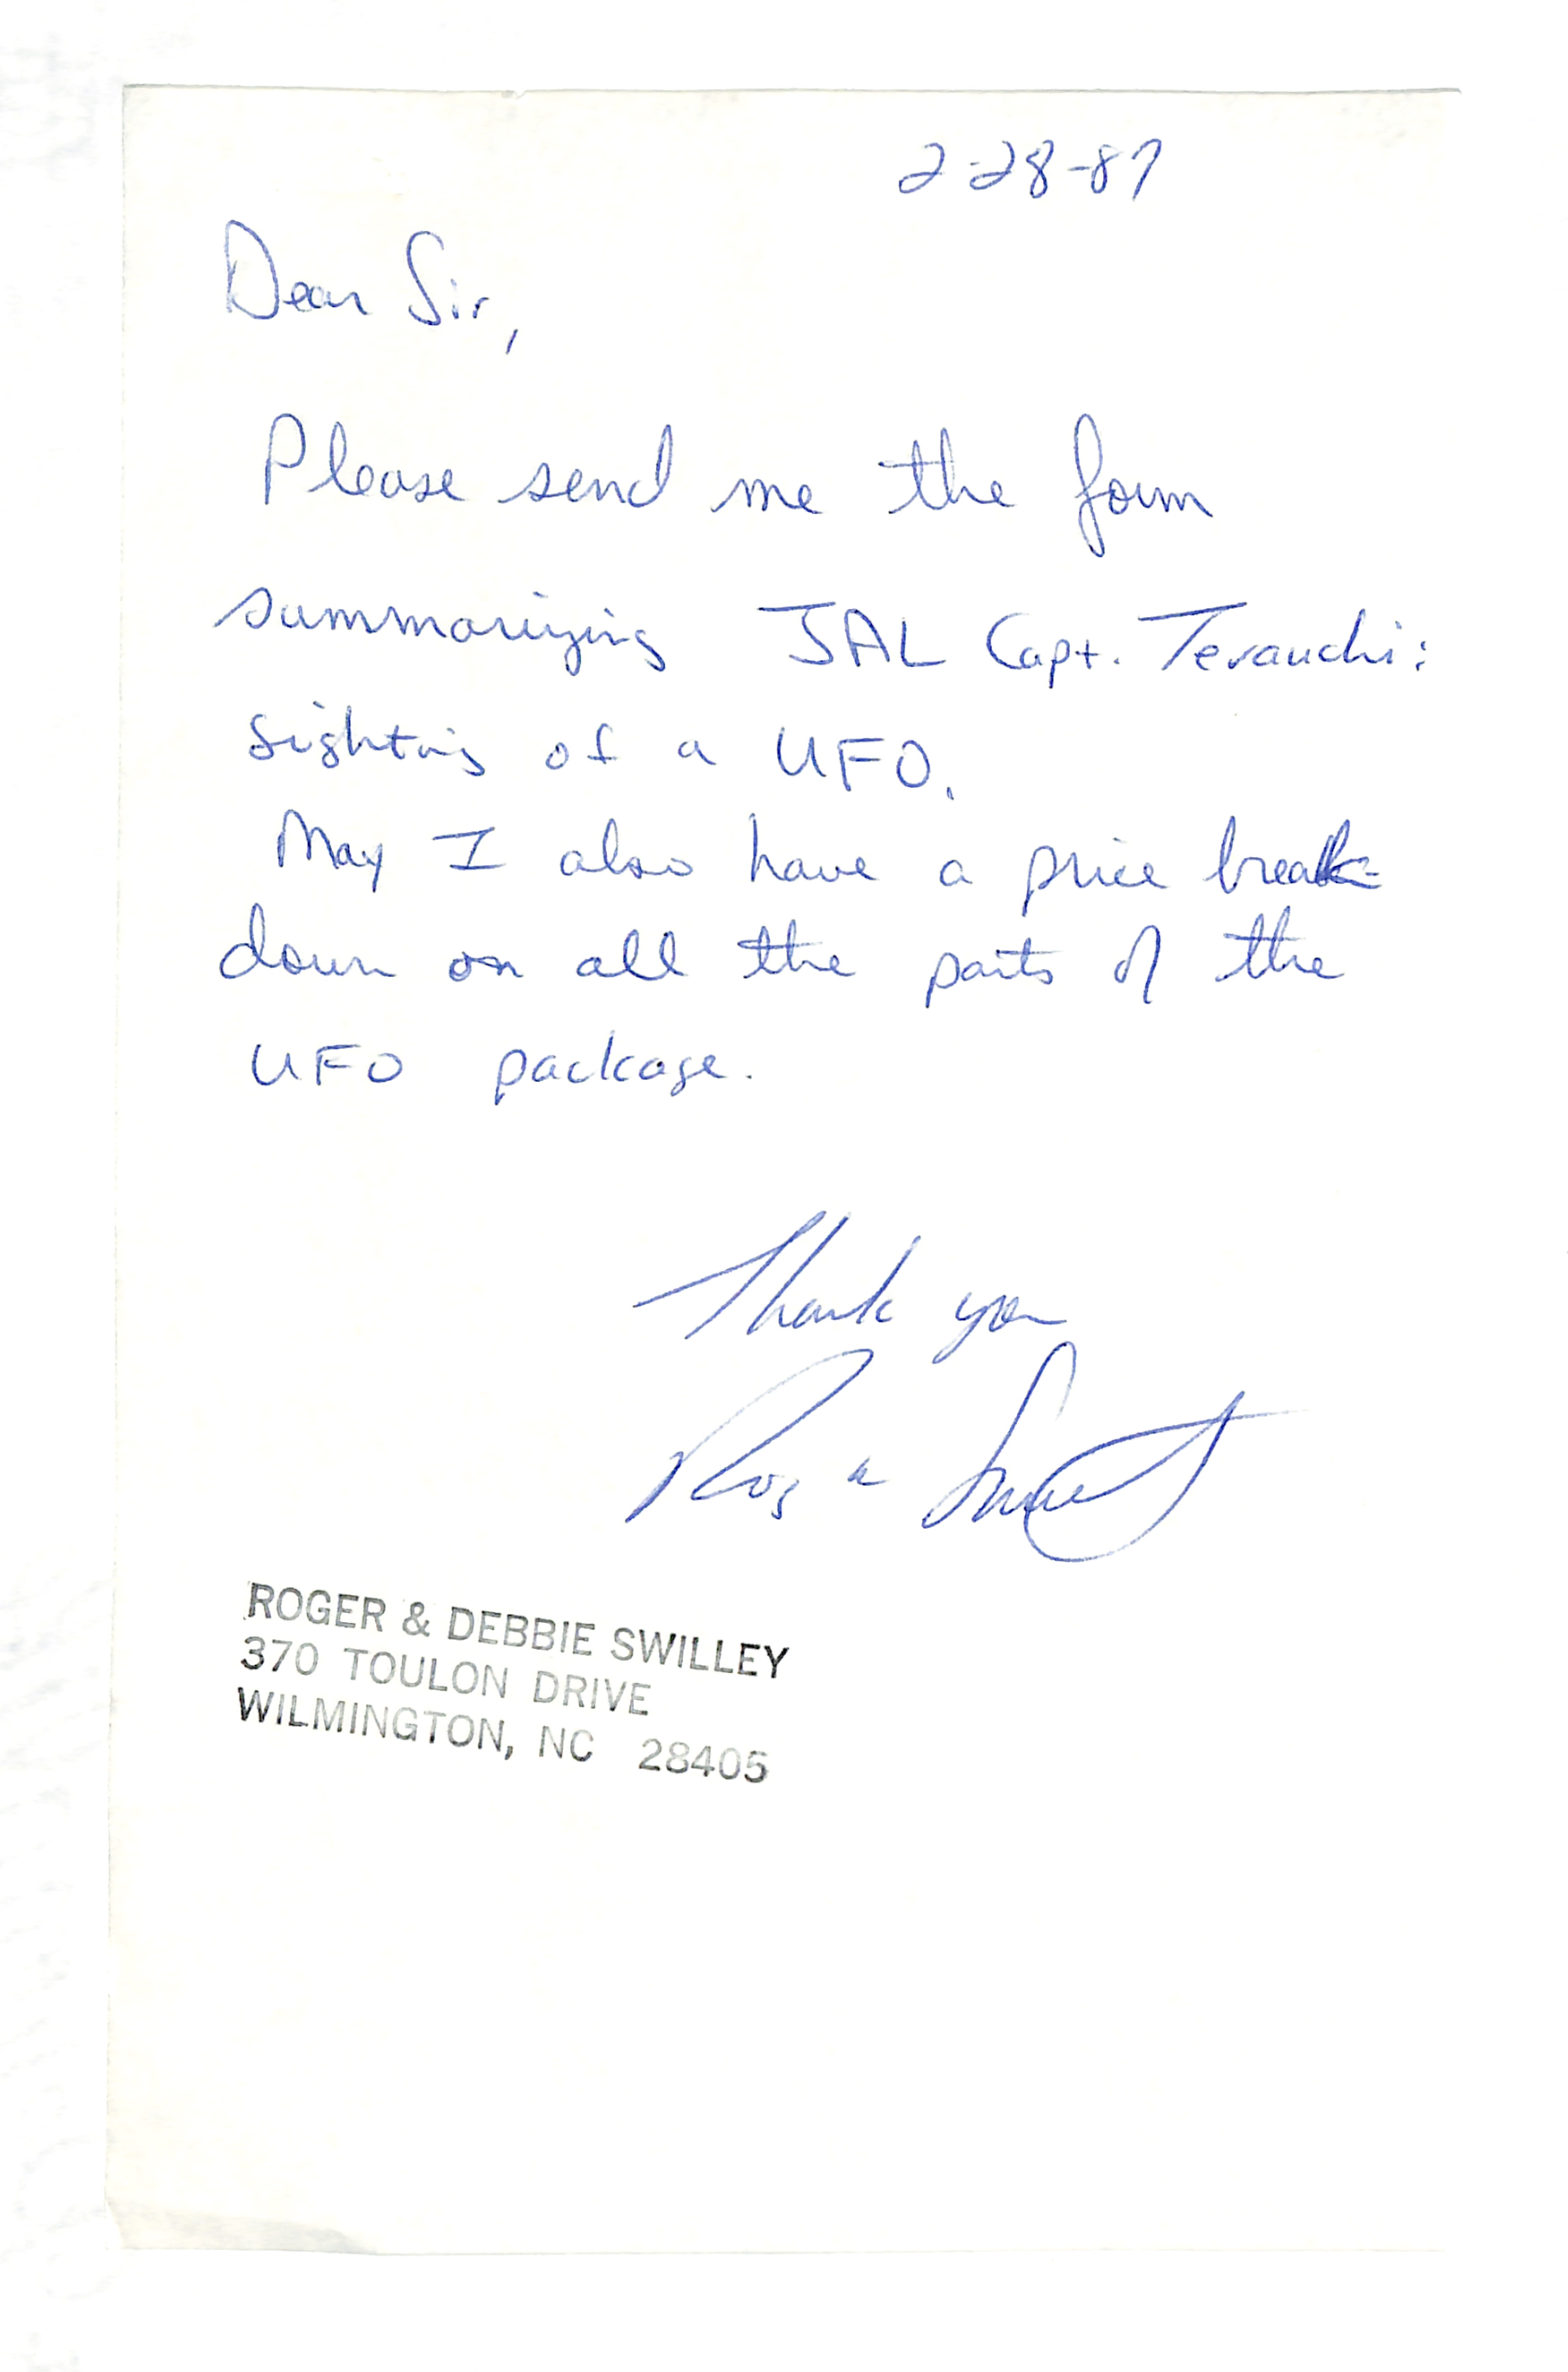 2-28-87
Dear Sir,
Please send me the form
summarizing JAL Capt. Terauchi:
sighting of a UFO.
May I also have a price break-
down on all the parts of the
UFO package.
Thank you
ROGER & DEBBIE SWILLEY
370 TOULON DRIVE
WILMINGTON, NC 28405